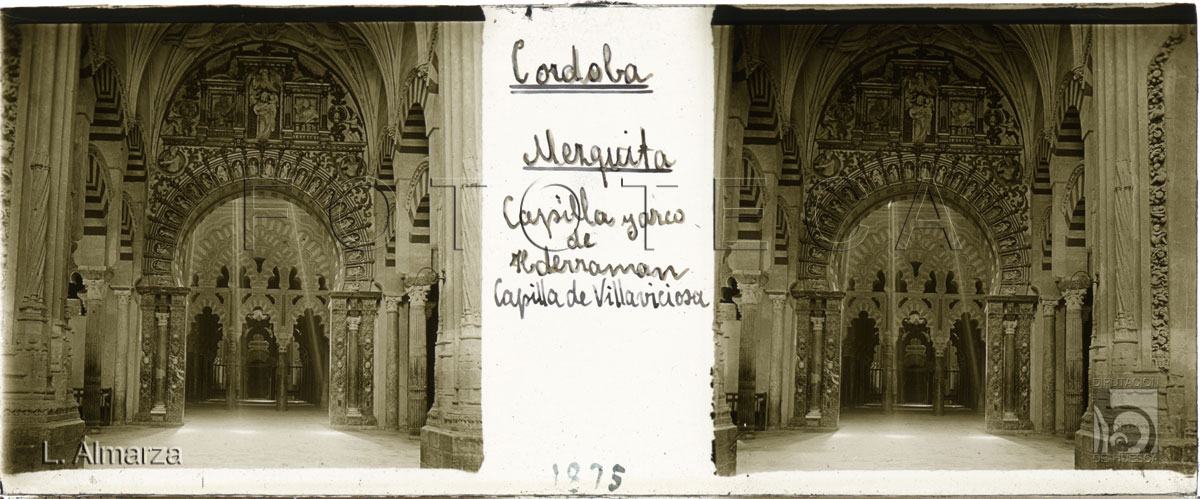 Cordoba
Mezquita
Capilla y arco
de
Hderraman
Capilla de Villaviciosa
FOTOTECA
L. Almarza
DIPUTACIÓN
DE HUESCA
1875